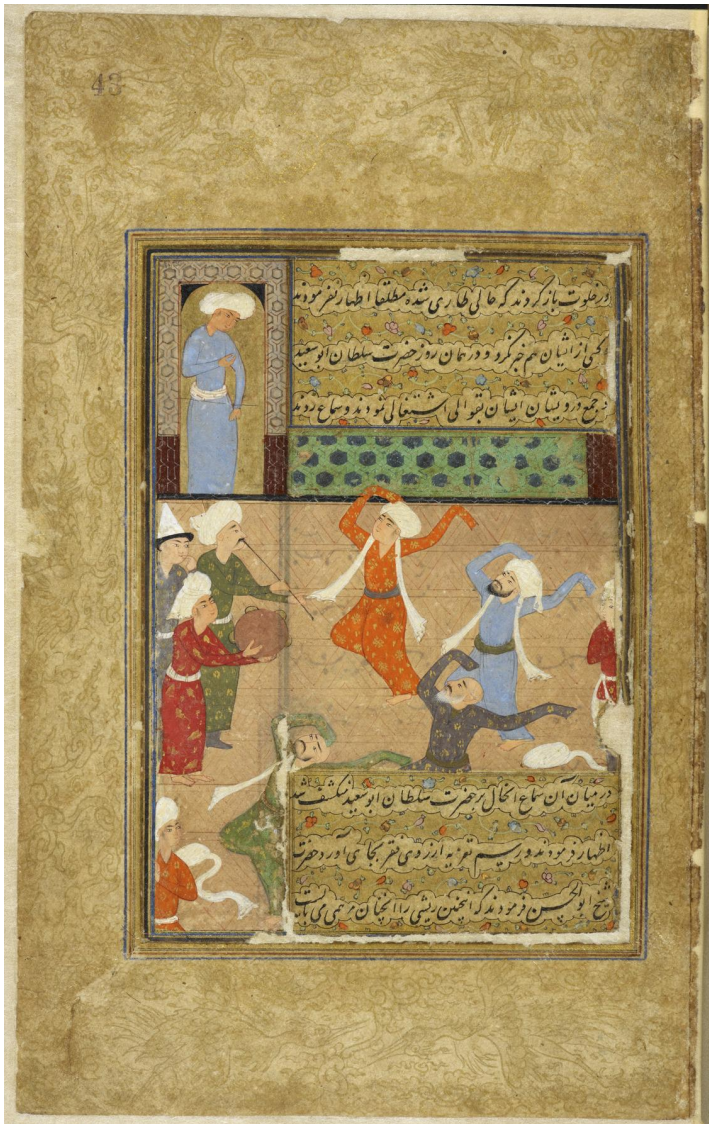 43
در خلوت باز کردند که حالی طاری شده مطلقا اظهار نفرمودند
از ایشان هم خبر نکرد و در همان روز حضرت سلطان ابوسعید
جمع درویشان ایشان بقوالی اشتغالی نمودند و سماع زدند
در میان آن سماع انحال بر حضرت سلطان ابوسعید منکشف شد
اظهار فرمودند و رسیم تعزیه ارزوی فقر بجای آورد حضرت
شیخ ابوالحسن فرمودند که انچنین ریشی را انچنان مرهمی می بایست